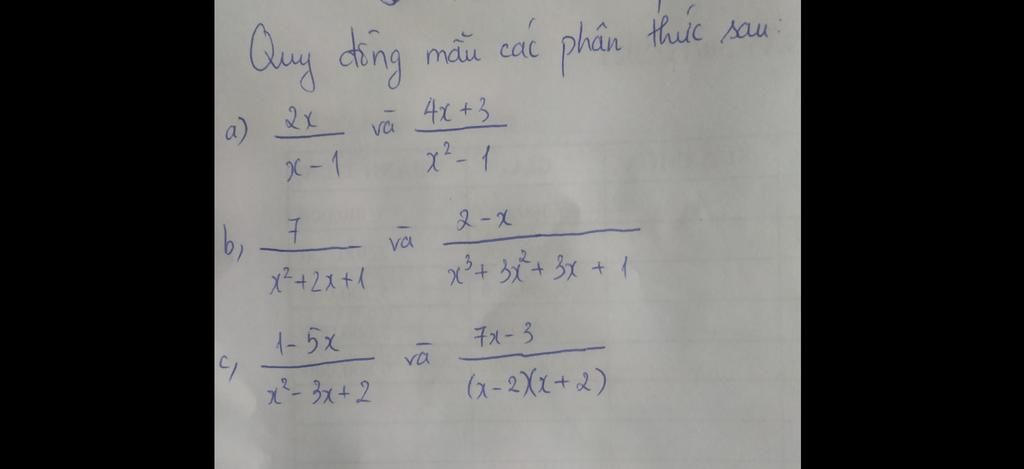 Quy đồng mẫu các phân thức sau:
a) \frac{2x}{x-1} và \frac{4x+3}{x^2-1}
b, \frac{7}{x^2+2x+1} và \frac{2-x}{x^3+3x^2+3x+1}
c, \frac{1-5x}{x^2-3x+2} và \frac{7x-3}{(x-2)(x+2)}